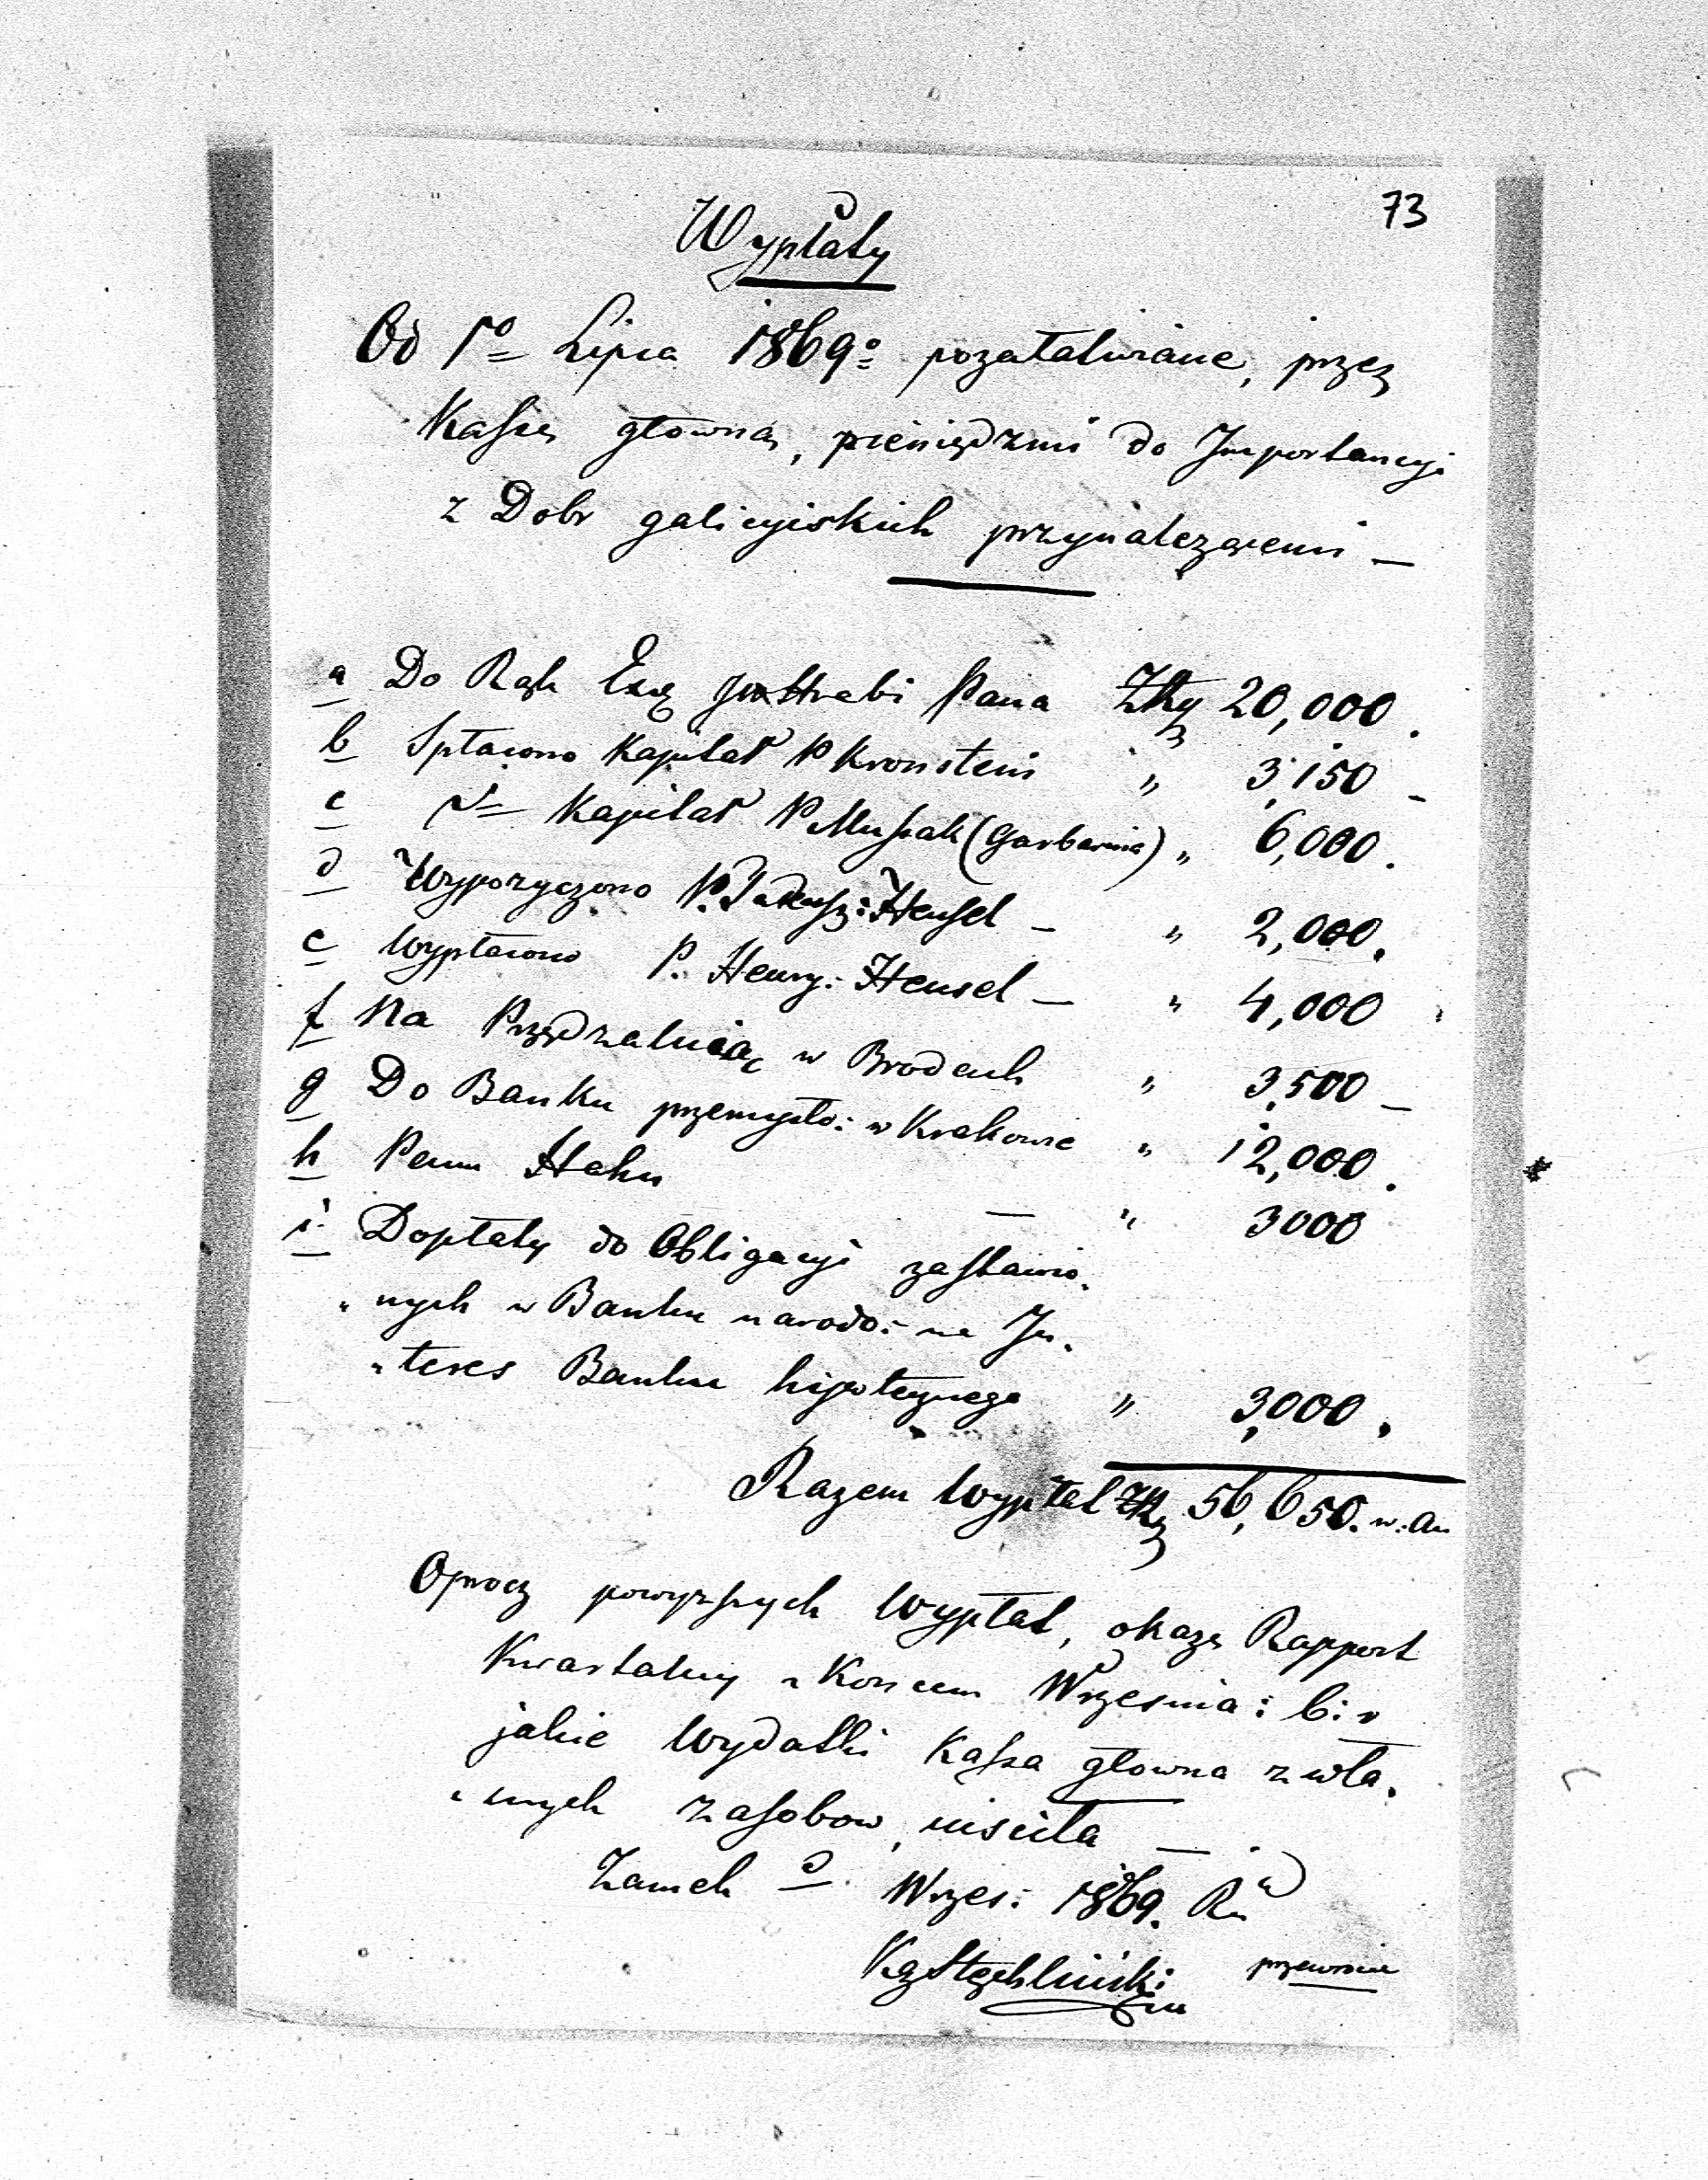 73
Wypłaty
Od 1º Lipca 1869º pozałatwiane, przez
Kassę głowną, pieniędzmi do Importancyi
z Dobr galicyiskich przynalezącemi —
a Do Rąk Exc Hrabi Pana Złry 20,000.
b Spłacono Kapitał P Kronstein " 3,150 —
c Kapitał P. Mussak (Garbarnia) " 6,000.
d Wypozyczono P. Tadeusz: Hensel — " 2,000.
e Wypłacono P. Henry: Hensel — " 4,000
f Na Przędzalnią w Brodach " 3,500 —
g Do Banku przemysło: w Krakowie " 12,000.
h Panu Hahn — " 3000
i. Dopłaty do Obligacyi zastawio„
„nych w Banku narodo: na In„
„teres Banku hipotecznego " 3,000.
Razem Wypłat Złry 56,650. w: au
Oprocz powyzszych Wypłat, okaze Rapport
Kwartalny z Koncem Wrzesnia: b: r
jakie Wydatki Kassa głowna z wła„
„snych zasobow, uisciła —.
Zamek Wrzes: 1869. Ru